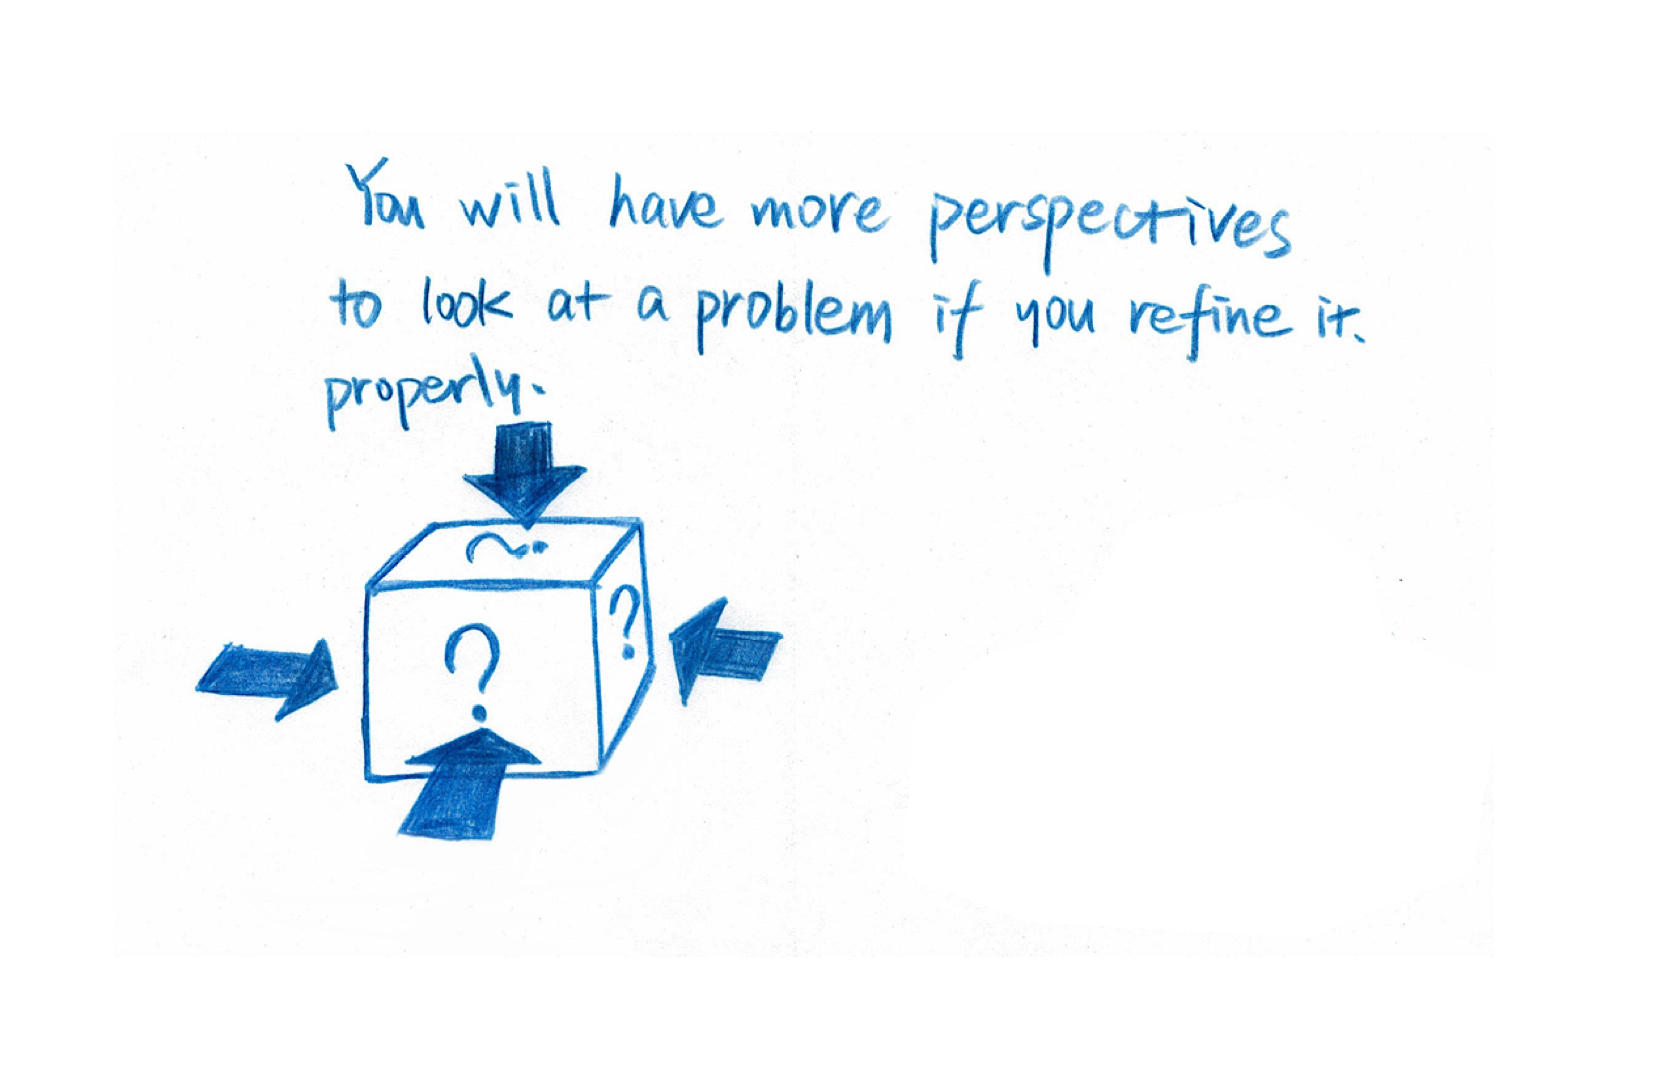 You will have more perspectives
to look at a problem if you refine it.
properly.
?
?
?